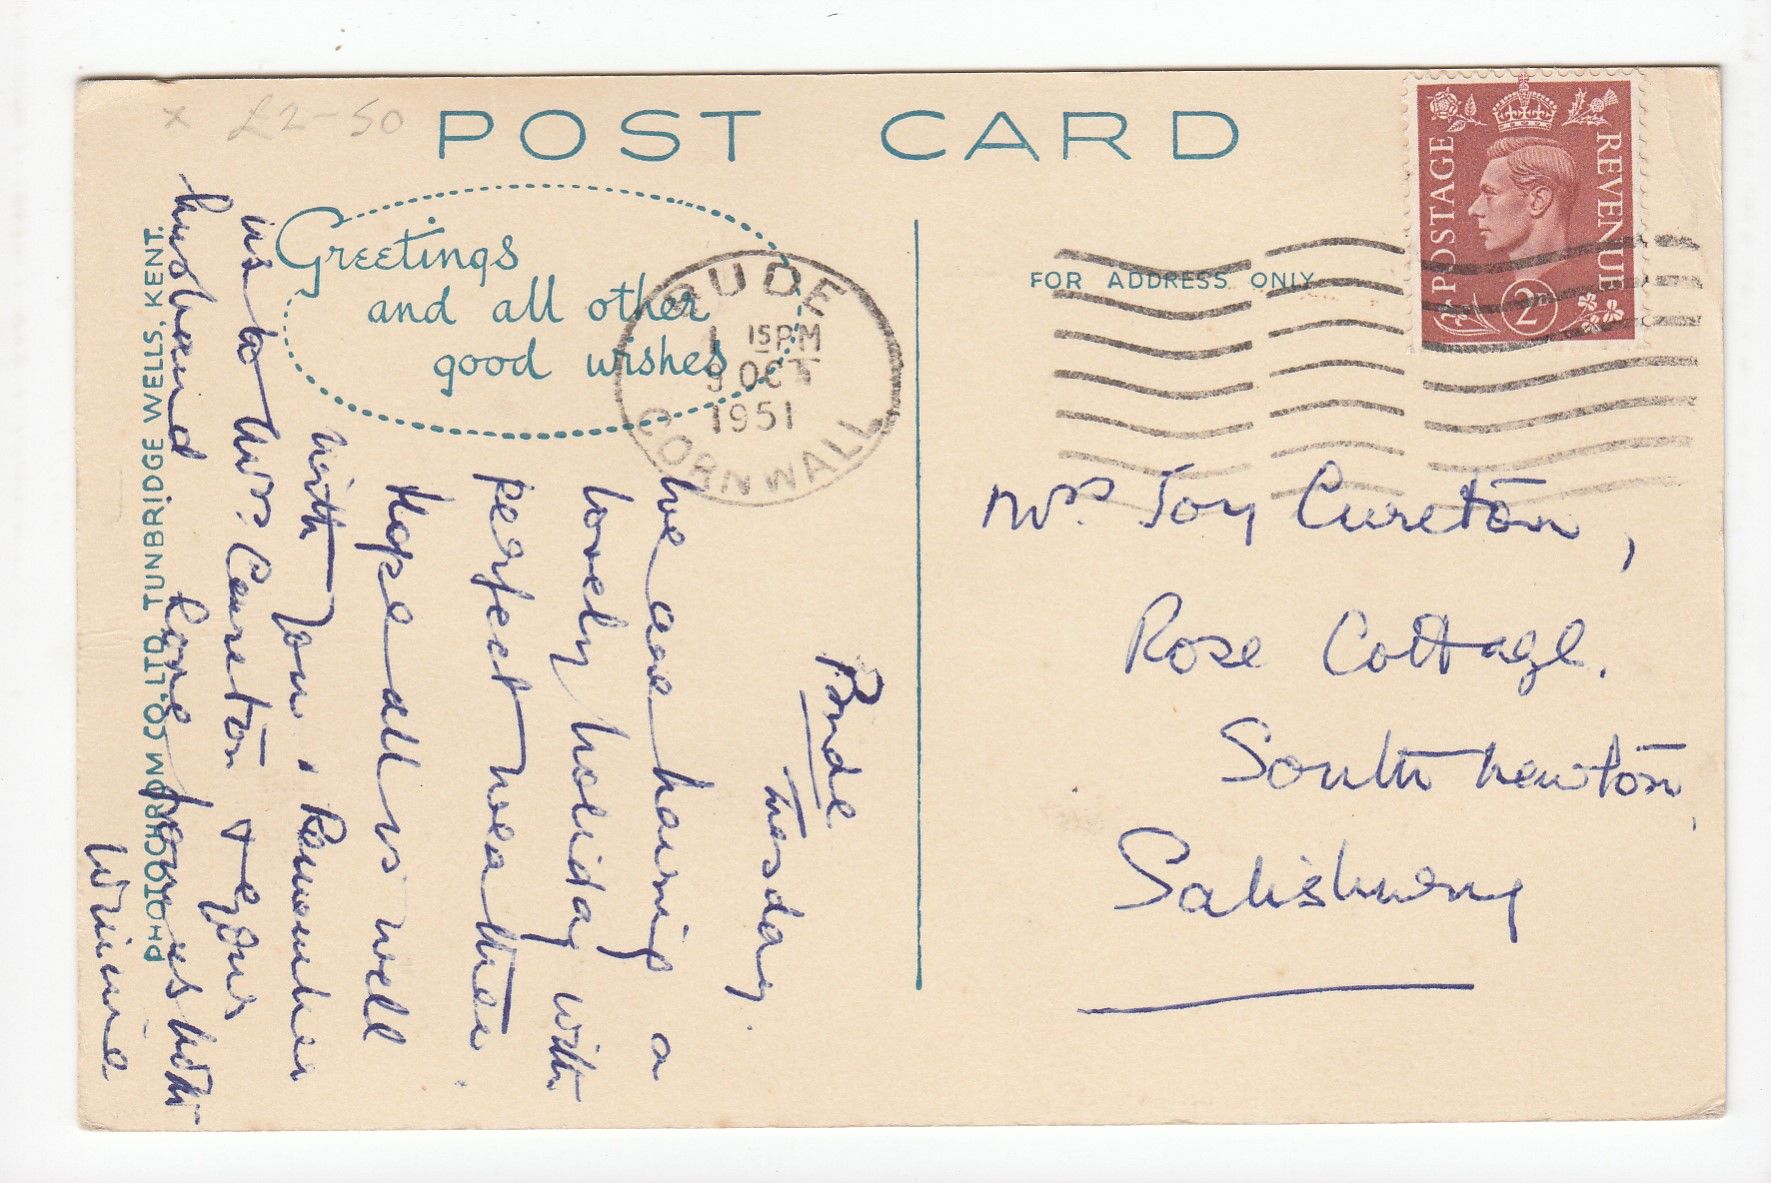 x £2-50
POST CARD
Greetings
and all other
good wishes
BUDE
1 15 PM
9 OCT
1951
CORNWALL
FOR ADDRESS ONLY
POSTAGE
REVENUE
2D
Mrs Joy Cureton,
Rose Cottage.
South Newton
Salisbury
Bude
Tuesday.
We are having a
lovely holiday with
perfect weather.
Hope all is well
with you. Remember
us to Mrs. Cureton & your
husband Love from us both
Winnie
PHOTOCHROM CO. LTD. TUNBRIDGE WELLS, KENT.